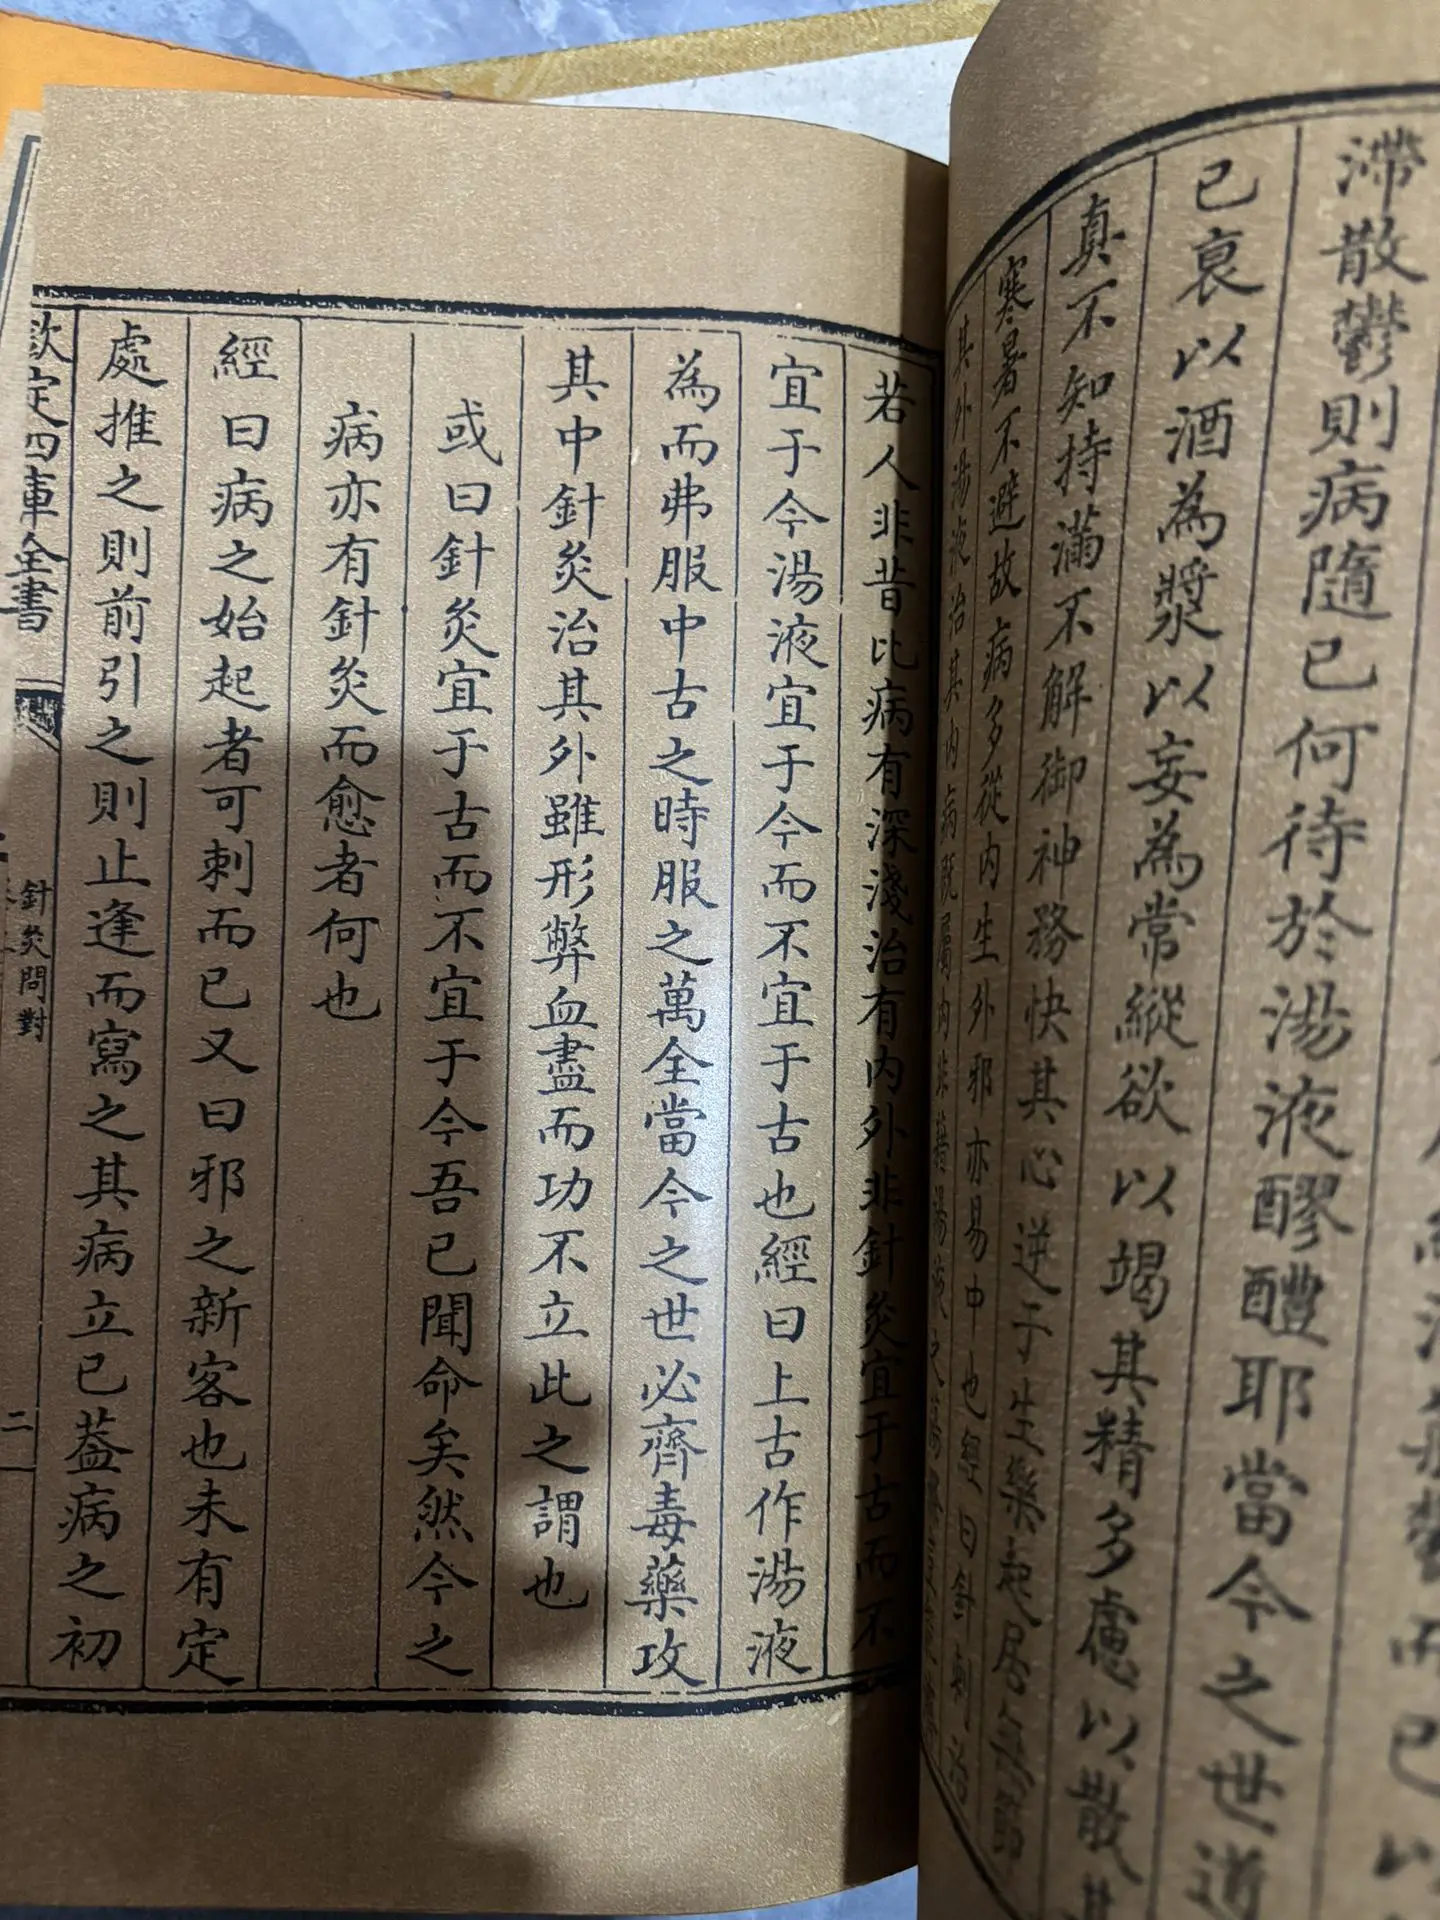 滯散鬱則病隨已何待於湯液醪醴耶當今之世道
已衰以酒為漿以妄為常縱欲以竭其精多慮以散其
真不知持滿不解御神務快其心逆于生樂起居無節
寒暑不避故病多從內生外邪亦易中也經曰針刺治
其外湯液治其內病既屬內非藉湯液之
若人非昔比病有深淺治有內外非針灸宜于古而不
宜于今湯液宜于今而不宜于古也經曰上古作湯液
為而弗服中古之時服之萬全當今之世必齊毒藥攻
其中針灸治其外雖形弊血盡而功不立此之謂也
或曰針灸宜于古而不宜于今吾已聞命矣然今之
病亦有針灸而愈者何也
經曰病之始起者可刺而已又曰邪之新客也未有定
處推之則前引之則止逢而寫之其病立已葢病之初
欽定四庫全書
針灸問對
二